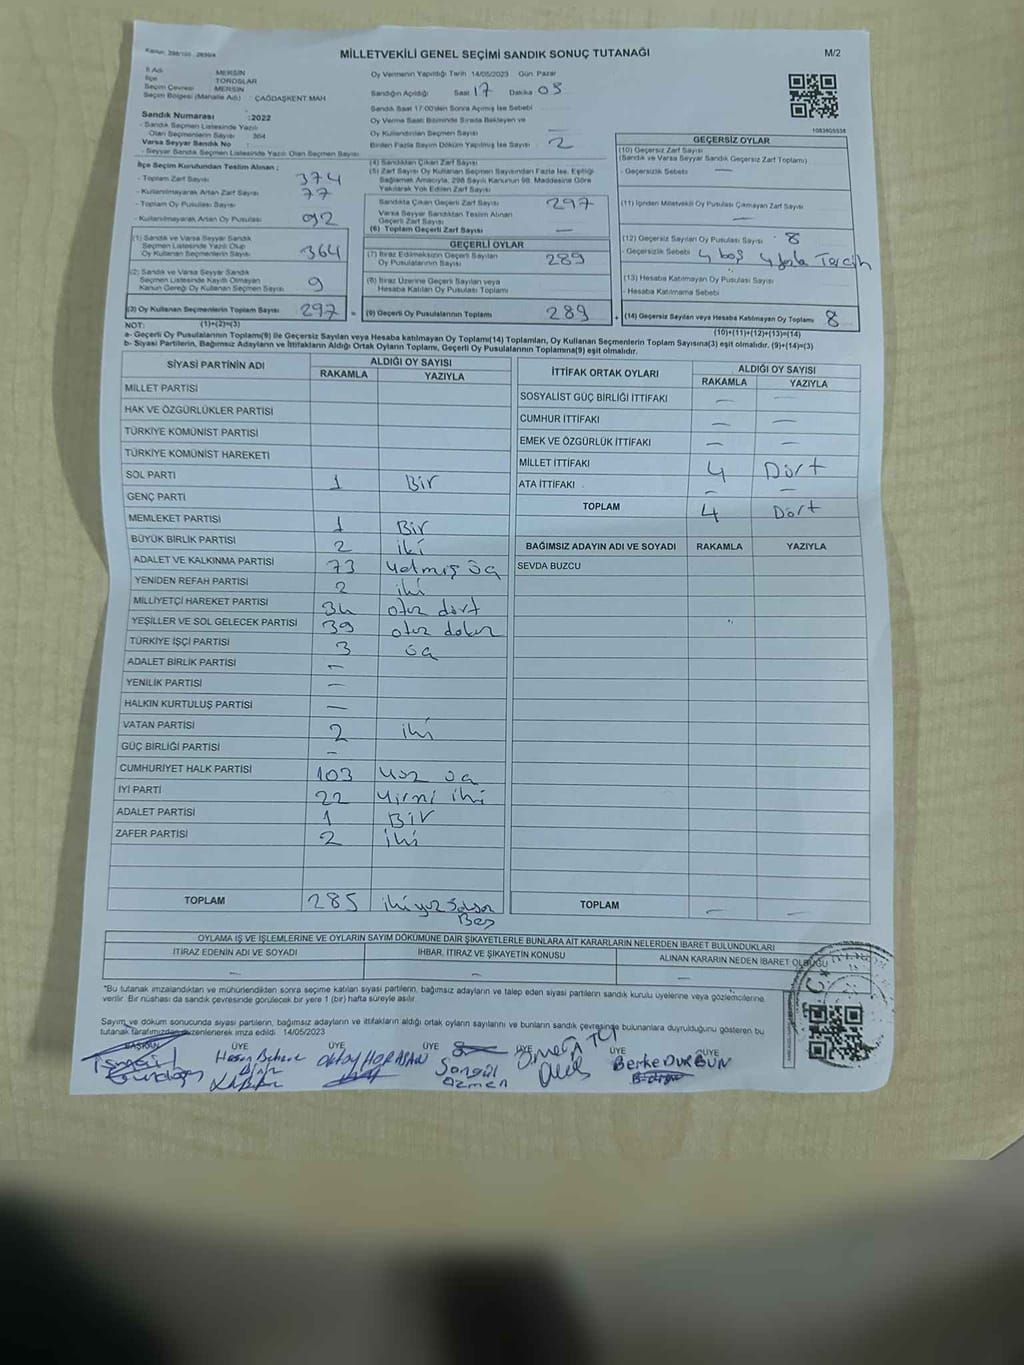 MİLLETVEKİLİ GENEL SEÇİMİ SANDIK SONUÇ TUTANAĞI
M/2
İl Adı : MERSİN
İlçe : TOROSLAR
Seçim Çevresi : MERSİN
Seçim Bölgesi (Mahalle Adı) : ÇAĞDAŞKENT MAH
Sandık Numarası :2022
- Sandık Seçmen Listesinde Yazılı
Olan Seçmenlerin Sayısı : 364
Varsa Seyyar Sandık No :
- Seyyar Sandık Seçmen Listesinde Yazılı Olan Seçmen Sayısı :
Oy Vermenin Yapıldığı Tarih 14/05/2023 Gün Pazar
Sandığın Açıldığı Saat 17 Dakika 03
Sandık Saat 17:00'den Sonra Açılmış İse Sebebi
Oy Verme Saati Bitiminde Sırada Bekleyen ve
Oy Kullandırılan Seçmen Sayısı —
Birden Fazla Sayım Döküm Yapılmış İse Sayısı 2
İlçe Seçim Kurulundan Teslim Alınan ;
- Toplam Zarf Sayısı 374
- Kullanılmayarak Artan Zarf Sayısı 77
- Toplam Oy Pusulası Sayısı
- Kullanılmayarak Artan Oy Pusulası 92
(1) Sandık ve Varsa Seyyar Sandık
Seçmen Listesinde Yazılı Olup
Oy Kullanan Seçmenlerin Sayısı 364
(2) Sandık ve Varsa Seyyar Sandık
Seçmen Listesinde Kayıtlı Olmayan
Kanun Gereği Oy Kullanan Seçmen Sayısı 9
(3) Oy Kullanan Seçmenlerin Toplam Sayısı 297 =
(4) Sandıktan Çıkan Zarf Sayısı
(5) Zarf Sayısı Oy Kullanan Seçmen Sayısından Fazla İse, Eşitliği
Sağlamak Amacıyla, 298 Sayılı Kanunun 98. Maddesine Göre
Yakılarak Yok Edilen Zarf Sayısı
Sandıkta Çıkan Geçerli Zarf Sayısı 297
Varsa Seyyar Sandıktan Teslim Alınan
Geçerli Zarf Sayısı
(6) Toplam Geçerli Zarf Sayısı —
GEÇERLİ OYLAR
(7) İtiraz Edilmeksizin Geçerli Sayılan
Oy Pusulalarının Sayısı 289
(8) İtiraz Üzerine Geçerli Sayılan veya
Hesaba Katılan Oy Pusulası Toplamı
(9) Geçerli Oy Pusulalarının Toplamı 289 +
1083605538
GEÇERSİZ OYLAR
(10) Geçersiz Zarf Sayısı
(Sandık ve Varsa Seyyar Sandık Geçersiz Zarf Toplamı)
- Geçersizlik Sebebi —
(11) İçinden Milletvekili Oy Pusulası Çıkmayan Zarf Sayısı
—
(12) Geçersiz Sayılan Oy Pusulası Sayısı 8
- Geçersizlik Sebebi 4 boş 4 fazla Tercih
(13) Hesaba Katılmayan Oy Pusulası Sayısı
- Hesaba Katılmama Sebebi
(14) Geçersiz Sayılan veya Hesaba Katılmayan Oy Toplamı 8
NOT: (1)+(2)=(3) (10)+(11)+(12)+(13)=(14)
a- Geçerli Oy Pusulalarının Toplamı(9) ile Geçersiz Sayılan veya Hesaba katılmayan Oy Toplamı(14) Toplamları, Oy Kullanan Seçmenlerin Toplam Sayısına(3) eşit olmalıdır. (9)+(14)=(3)
b- Siyasi Partilerin, Bağımsız Adayların ve İttifakların Aldığı Ortak Oyların Toplamı, Geçerli Oy Pusulalarının Toplamına(9) eşit olmalıdır.
SİYASİ PARTİNİN ADI ALDIĞI OY SAYISI
RAKAMLA YAZIYLA
MİLLET PARTİSİ
HAK VE ÖZGÜRLÜKLER PARTİSİ
TÜRKİYE KOMÜNİST PARTİSİ
TÜRKİYE KOMÜNİST HAREKETİ
SOL PARTİ 1 Bir
GENÇ PARTİ
MEMLEKET PARTİSİ 1 Bir
BÜYÜK BİRLİK PARTİSİ 2 iki
ADALET VE KALKINMA PARTİSİ 73 yetmiş üç
YENİDEN REFAH PARTİSİ 2 iki
MİLLİYETÇİ HAREKET PARTİSİ 34 otuz dört
YEŞİLLER VE SOL GELECEK PARTİSİ 39 otuz dokuz
TÜRKİYE İŞÇİ PARTİSİ 3 üç
ADALET BİRLİK PARTİSİ —
YENİLİK PARTİSİ —
HALKIN KURTULUŞ PARTİSİ —
VATAN PARTİSİ 2 iki
GÜÇ BİRLİĞİ PARTİSİ —
CUMHURİYET HALK PARTİSİ 103 yüz üç
İYİ PARTİ 22 yirmi iki
ADALET PARTİSİ 1 Bir
ZAFER PARTİSİ 2 iki
TOPLAM 285 ikiyüz Seksen
Beş
İTTİFAK ORTAK OYLARI ALDIĞI OY SAYISI
RAKAMLA YAZIYLA
SOSYALİST GÜÇ BİRLİĞİ İTTİFAKI — —
CUMHUR İTTİFAKI — —
EMEK VE ÖZGÜRLÜK İTTİFAKI — —
MİLLET İTTİFAKI 4 Dört
ATA İTTİFAKI — —
TOPLAM 4 Dört
BAĞIMSIZ ADAYIN ADI VE SOYADI RAKAMLA YAZIYLA
SEVDA BUZCU
TOPLAM — —
OYLAMA İŞ VE İŞLEMLERİNE VE OYLARIN SAYIM DÖKÜMÜNE DAİR ŞİKAYETLERLE BUNLARA AİT KARARLARIN NELERDEN İBARET BULUNDUKLARI
İTİRAZ EDENİN ADI VE SOYADI İHBAR, İTİRAZ VE ŞİKAYETİN KONUSU ALINAN KARARIN NEDEN İBARET OLDUĞU
— — —
"Bu tutanak imzalandıktan ve mühürlendikten sonra seçime katılan siyasi partilerin, bağımsız adayların ve talep eden siyasi partilerin sandık kurulu üyelerine veya gözlemcilerine
verilir. Bir nüshası da sandık çevresinde görülecek bir yere 1 (bir) hafta süreyle asılır.
Sayım ve döküm sonucunda siyasi partilerin, bağımsız adayların ve ittifakların aldığı ortak oyların sayılarını ve bunların sandık çevresinde bulunanlara duyrulduğunu gösteren bu
tutanak tarafımızdan düzenlenerek imza edildi. 14/05/2023
BAŞKAN ÜYE ÜYE ÜYE ÜYE ÜYE ÜYE
Oktay HORASAN
Songül
Özmen
Berke DURGUN